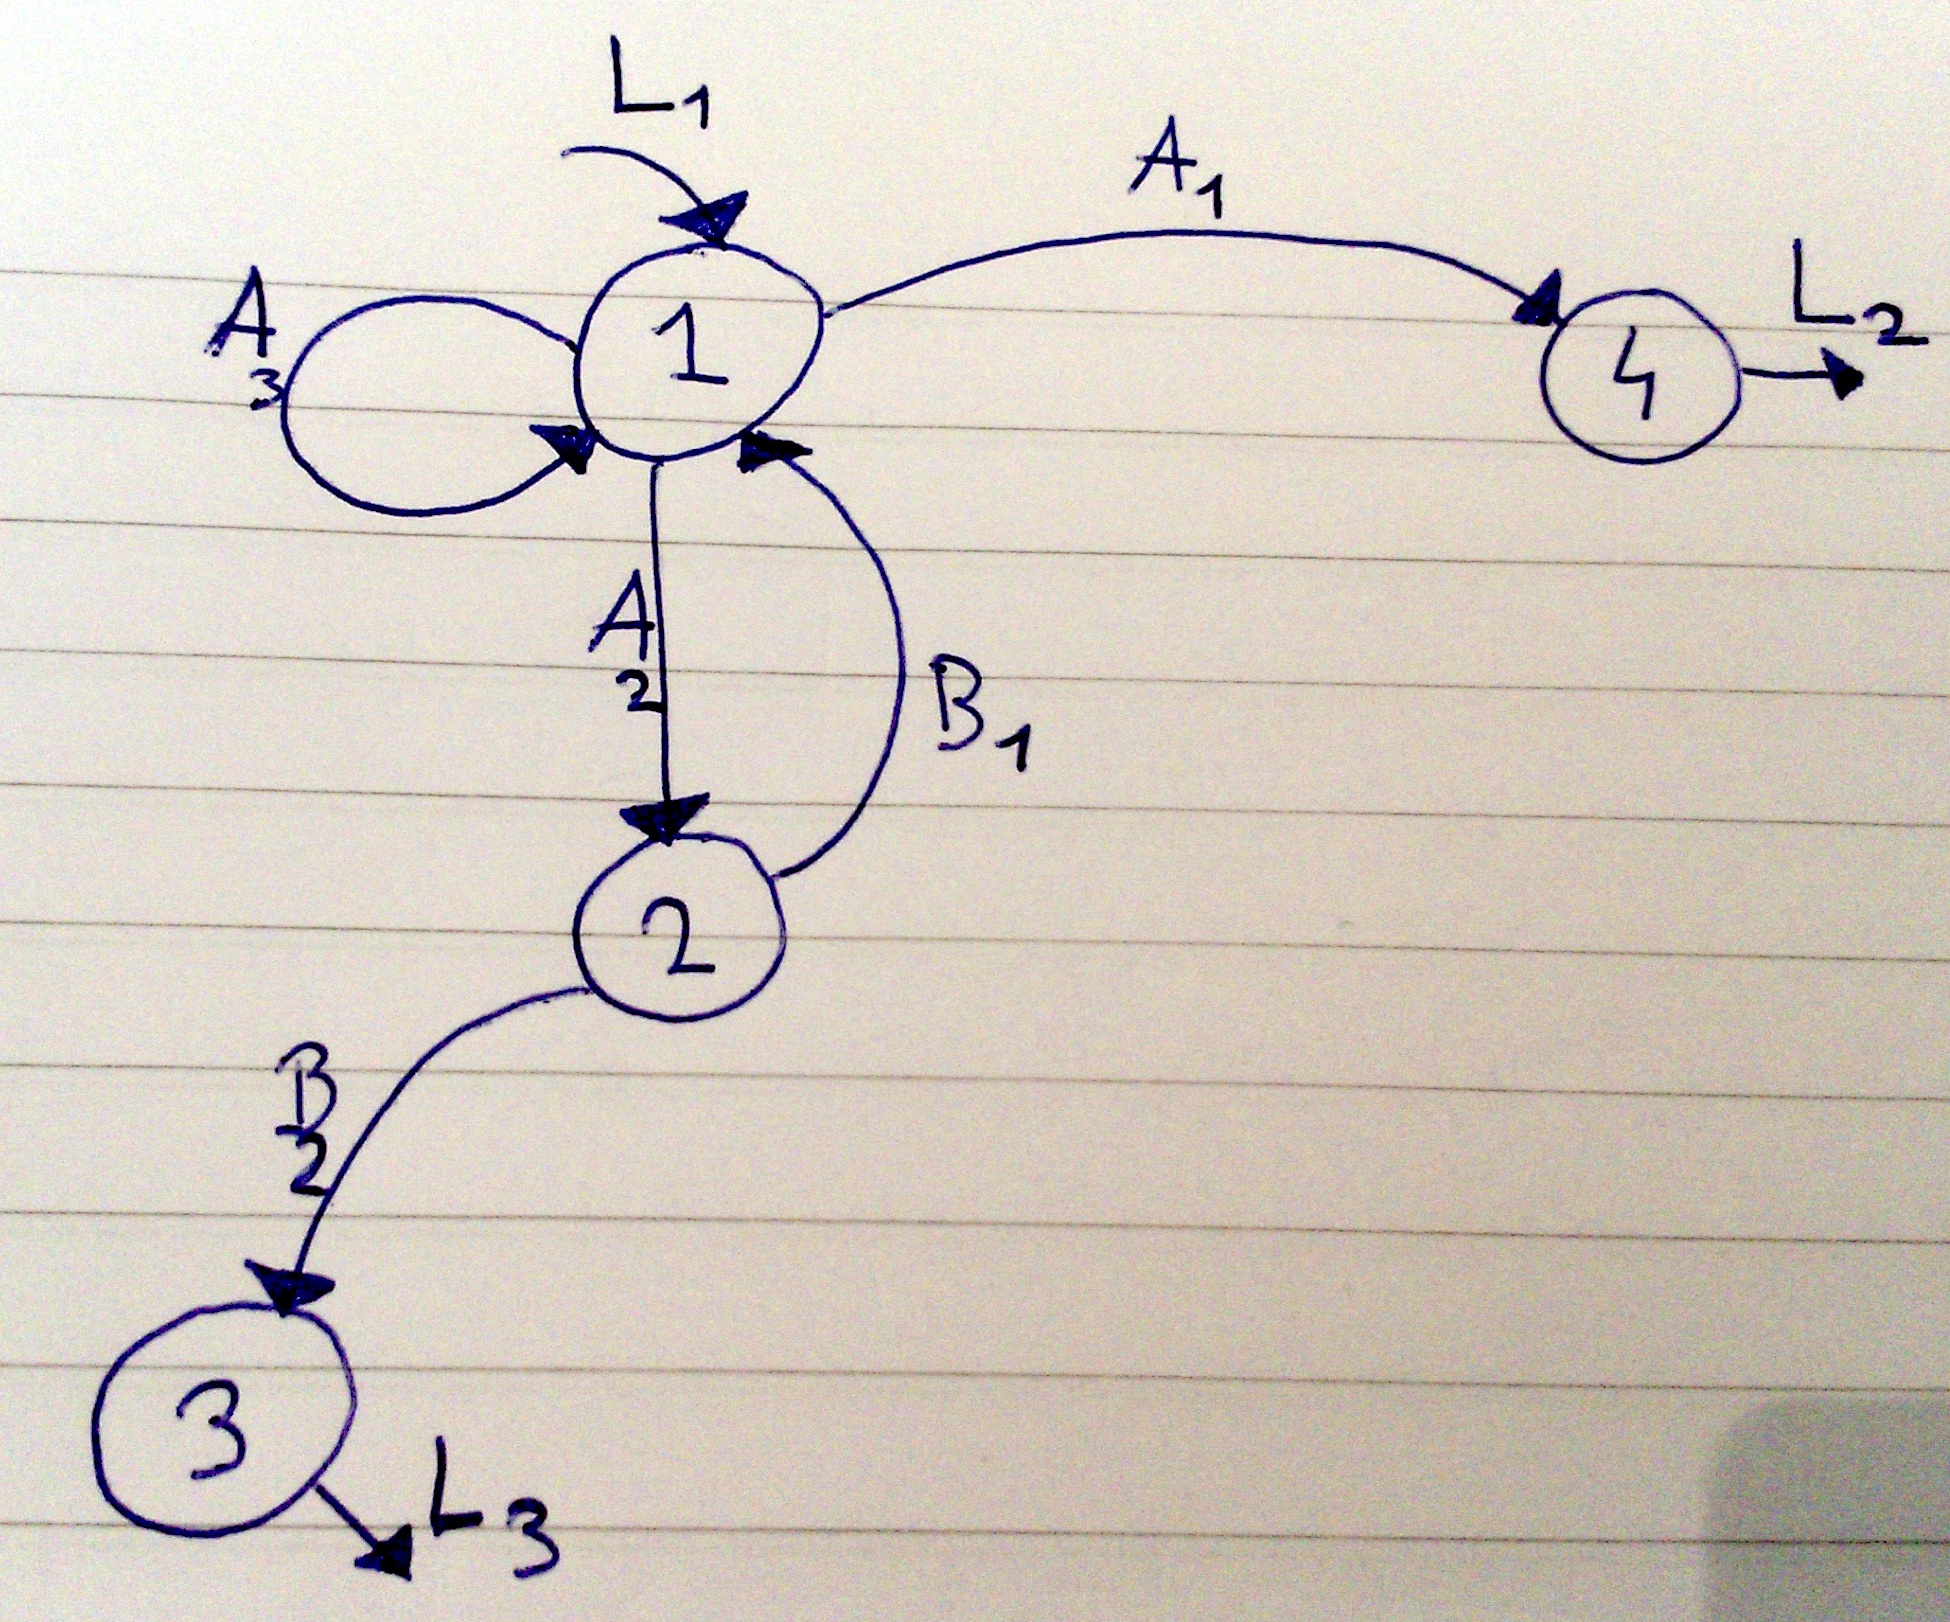 L1
A1
L2
A3
1
4
A2
B1
2
B2
3
L3